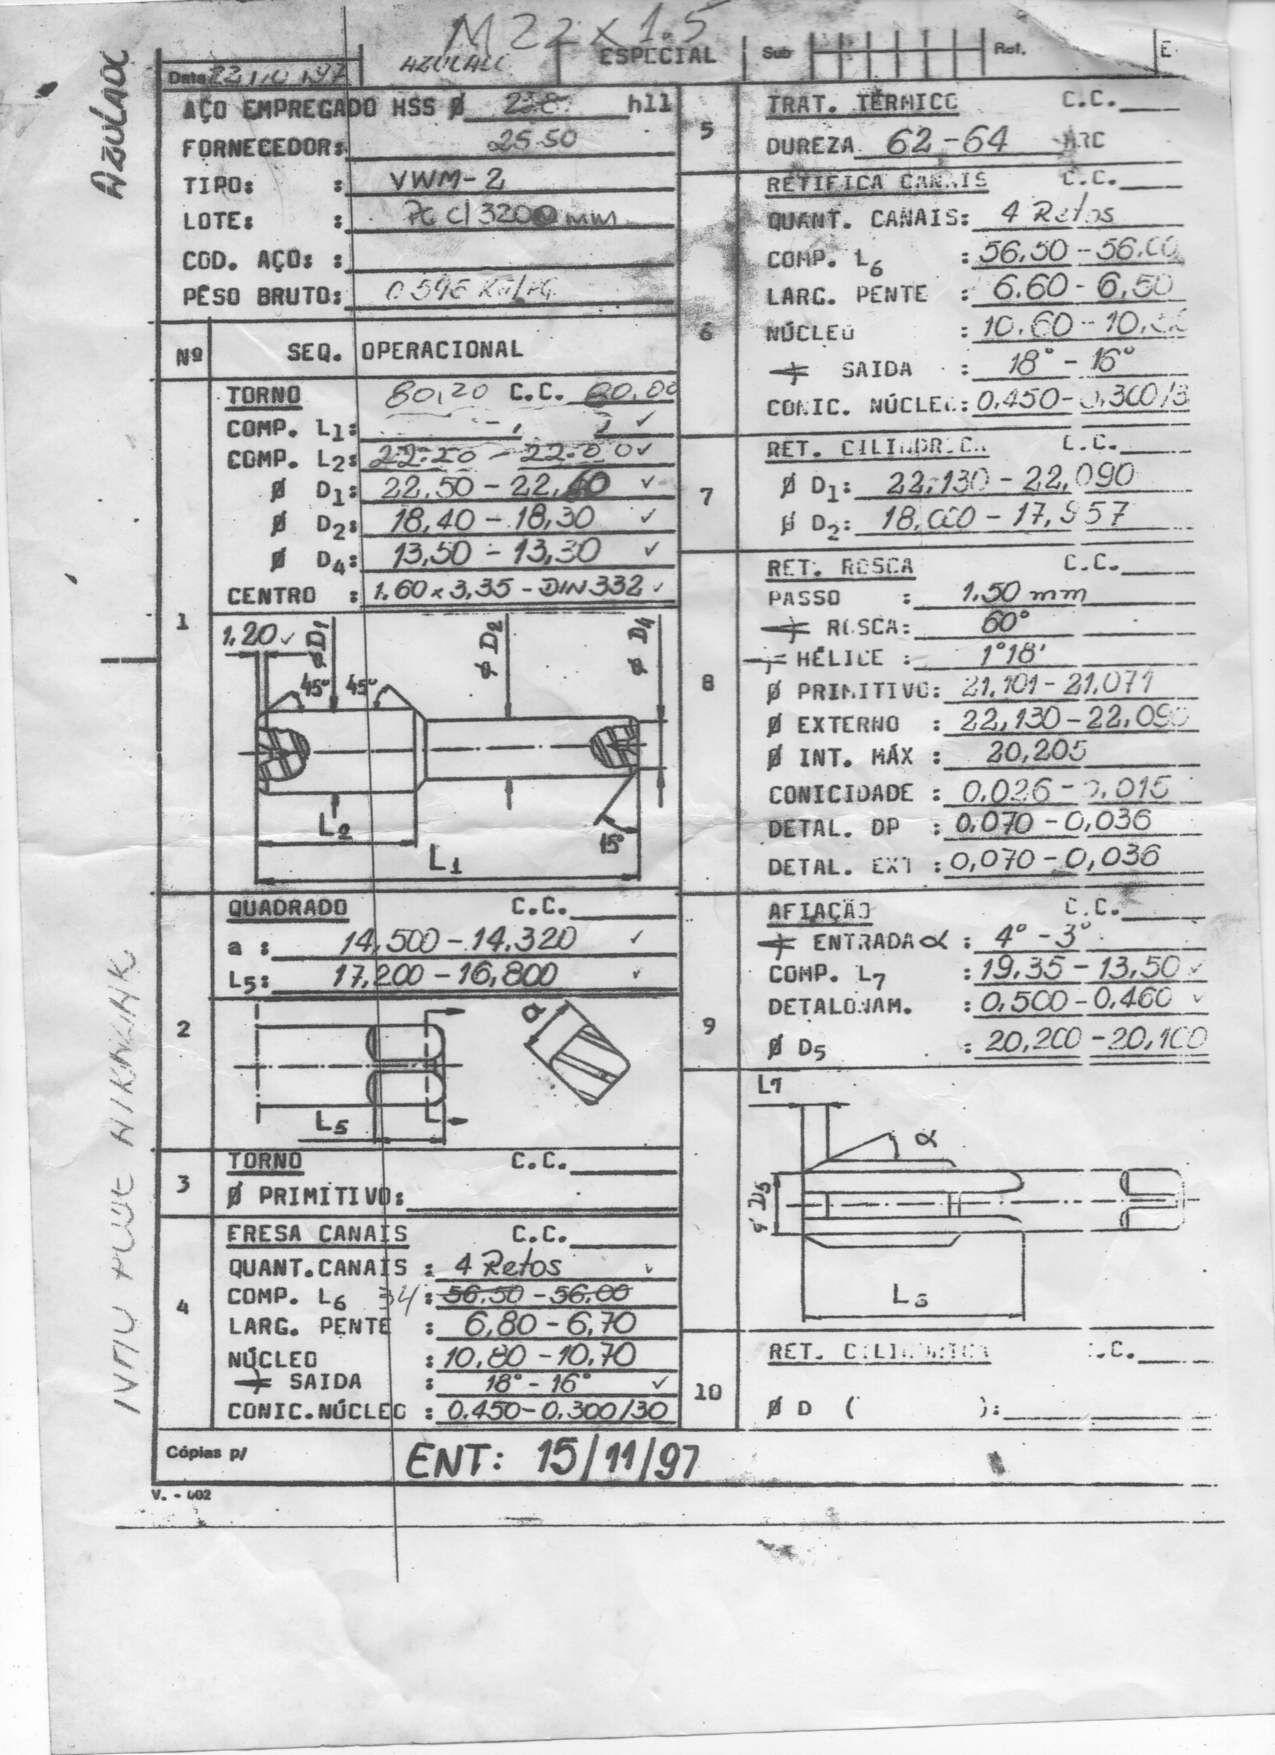 M 22 x 1.5
AZULADO
Data 23/10/97
ESPECIAL
Sub
Ref.
E
AZULADO
AÇO EMPREGADO HSS Ø h11
25.50
FORNECEDOR:
TIPO: : VWM-2
LOTE: : mm
COD. AÇO: :
PESO BRUTO: 0.596 KG/PÇ
Nº SEQ. OPERACIONAL
1
TORNO 80,20 C.C. 80,00
COMP. L1: ✓
COMP. L2: 22.20 - 22.00 ✓
Ø D1: 22,50 - 22,40 ✓
Ø D2: 18,40 - 18,30 ✓
Ø D4: 13,50 - 13,30 ✓
CENTRO : 1,60 x 3,35 - DIN 332 ✓
1,20 ✓
Ø D1
Ø D2
Ø D4
45° 45°
L2
15°
L1
2
QUADRADO C.C.
a : 14,500 - 14,320 ✓
L5: 17,200 - 16,800 ✓
a
L5
3
TORNO C.C.
Ø PRIMITIVO:
4
FRESA CANAIS C.C.
QUANT.CANAIS : 4 Retos ✓
COMP. L6 34 : 56.50 - 56.00
LARG. PENTE : 6,80 - 6,70
NÚCLEO : 10,80 - 10,70
SAIDA : 18° - 16° ✓
CONIC.NÚCLEO : 0,450 - 0,300/30
5
TRAT. TÉRMICO C.C.
DUREZA 62 - 64 HRC
6
RETIFICA CANAIS C.C.
QUANT. CANAIS: 4 Retos
COMP. L6 : 56,50 - 56,00
LARG. PENTE : 6.60 - 6,50
NÚCLEO : 10.60 -
SAIDA : 18° - 16°
CONIC. NÚCLEO: 0,450 - 0,300/3
7
RET. CILINDRICA C.C.
Ø D1: 22,130 - 22,090
Ø D2: 18,000 - 17,957
8
RET. ROSCA C.C.
PASSO : 1,50 mm
ROSCA: 60°
HÉLICE : 1°18'
Ø PRIMITIVO: 21,101 - 21,071
Ø EXTERNO : 22,130 - 22,090
Ø INT. MÁX : 20,205
CONICIDADE : 0,026 - 0,015
DETAL. DP : 0,070 - 0,036
DETAL. EXT : 0,070 - 0,036
9
AFIAÇÃO C.C.
ENTRADA α : 4° - 3°
COMP. L7 : 19,35 - 13,50 ✓
DETALONAM. : 0,500 - 0,460 ✓
Ø D5 : 20,200 - 20,100
L7
α
Ø D5
L6
10
RET. CILINDRICA C.C.
Ø D ( ):
Cópias p/
ENT: 15/11/97
V. - 002